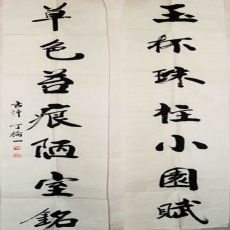 玉杯珠柱小園賦
草色苔痕陋室銘